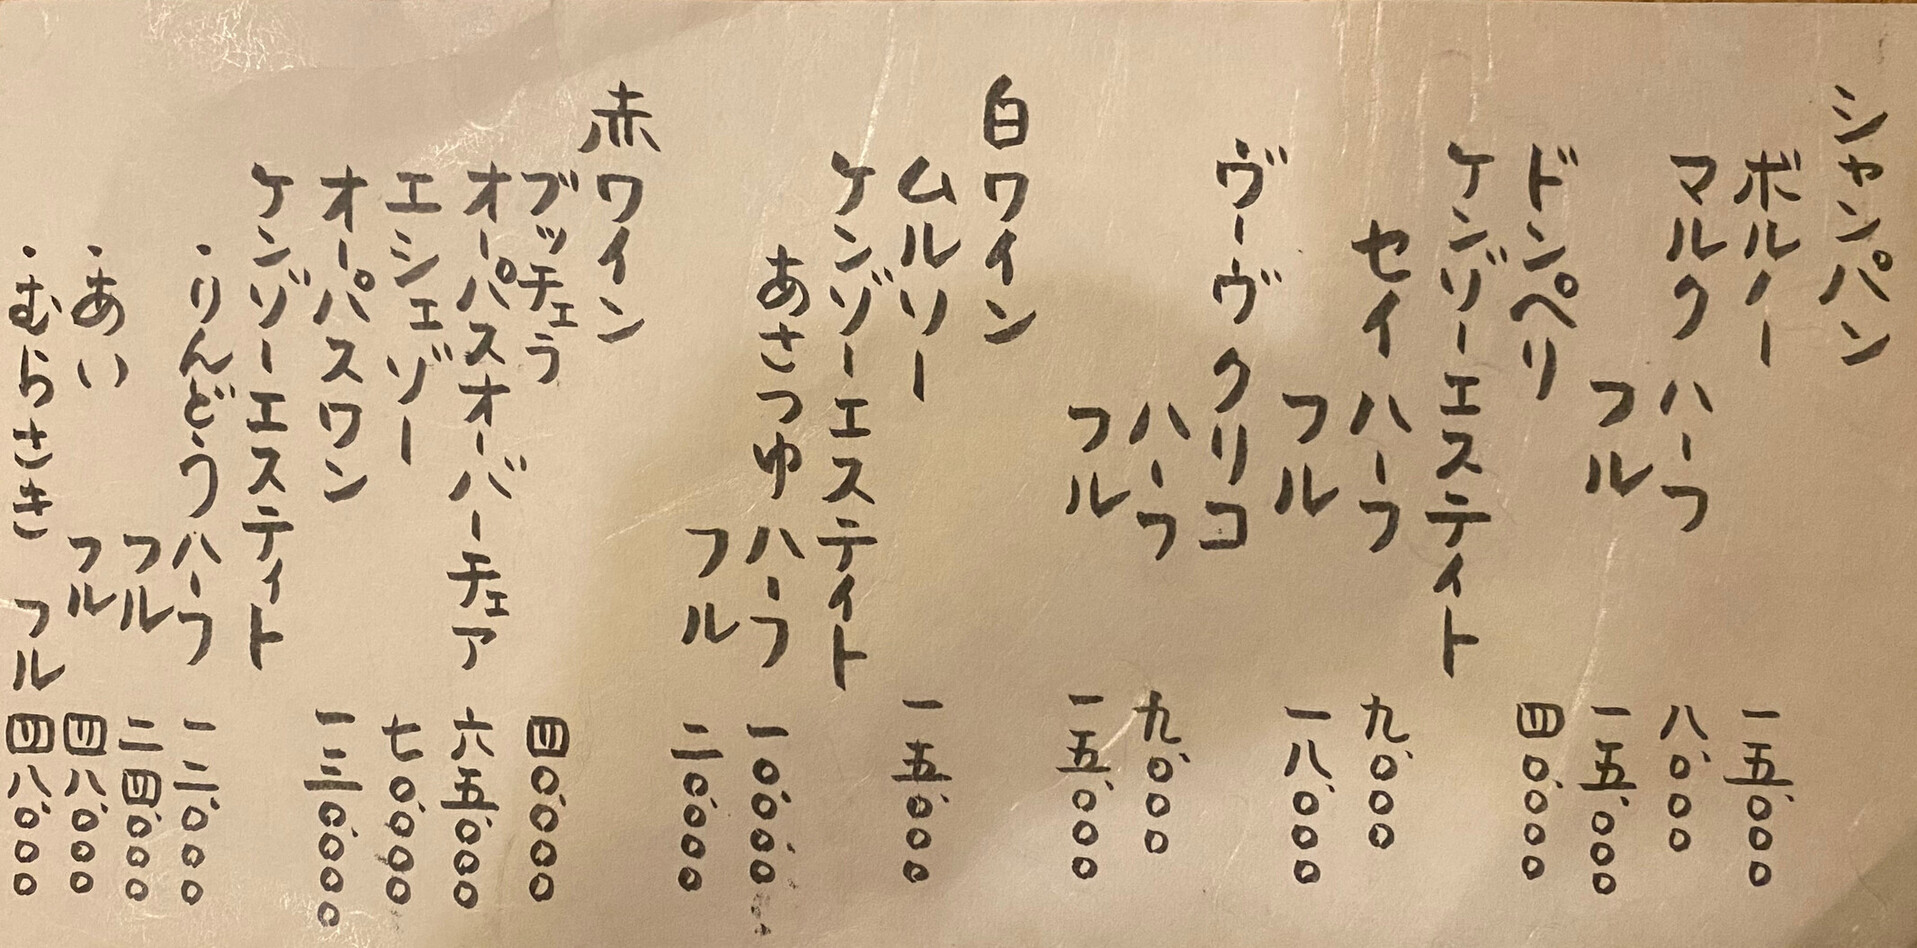 シャンパン
ボルノー 一五、〇〇〇
マルク ハーフ 八、〇〇〇
フル 一五、〇〇〇
ドンペリ 四〇、〇〇〇
ケンゾーエスティト
セイ ハーフ 九、〇〇〇
フル 一八、〇〇〇
ヴーヴクリコ
ハーフ 九、〇〇〇
フル 一五、〇〇〇
白ワイン
ムルソー 一五、〇〇〇
ケンゾーエスティト
あさつゆ ハーフ 一〇、〇〇〇
フル 二〇、〇〇〇
赤ワイン
ブッチェラ 四〇、〇〇〇
オーパスオーバーチェア 六五、〇〇〇
エシェゾー 七〇、〇〇〇
オーパスワン 一三〇、〇〇〇
ケンゾーエスティト
・りんどう ハーフ 一二、〇〇〇
フル 二四、〇〇〇
・あい フル 四八、〇〇〇
・むらさき フル 四八、〇〇〇